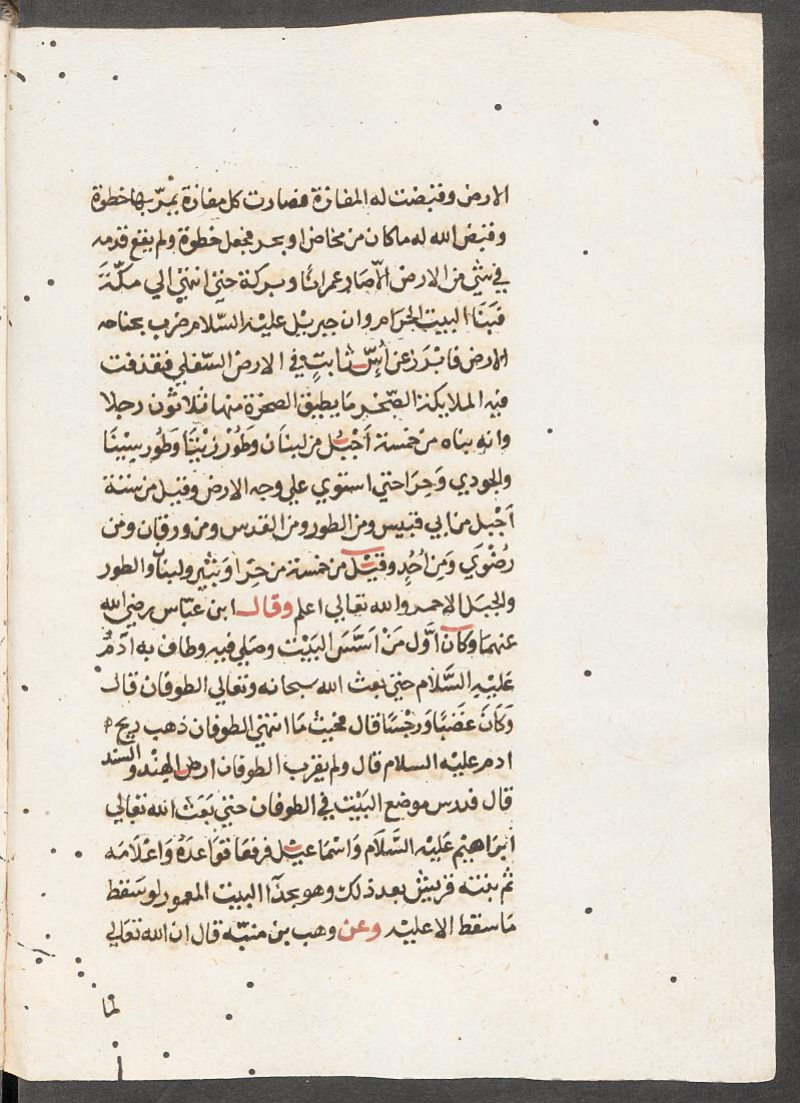 الارض وقبضت له المفازة فصارت كل مفازة يمرّ بها خطوة
وقبض الله له ماكان من مخاض او بحر فجعل خطوة ولم يقع قدمه
في شي من الارض الّا صار عمرانًا وبركة حتي انتهي الي مكّة
فبَنَا البيت الحرام وان جبريل عليه السّلام ضرب بجناحه
الارض فابرَز عن اُسّ ثابتٍ في الارض السّفلي فقذفت
فيه الملايكة الصّخر مَا يطيق الصخرة منها ثلاثون رجلا
وانه بناه من خمسة اَجبُل من لبنان وَطُوْر زَيْتَا وَطُور سِيْنَا
والجودي وَحِرَا حتي استوي علي وجه الارض وقيل من ستة
اَجبل من ابي قبَيس ومن الطور ومن القدس ومن ورقان ومن
رضْوَي وَمِن اُحُدٍ وقيْل من خمسة من حِرَا وَثَبْير ولبنان والطور
والجبَل الاحمر والله تعالي اعلم وقال ابن عبّاس رضي الله
عنهمَا وكان اَوّل مَنْ اَسّسَ البَيْت وصَلي فيه وطاف به ادَمُ
عَليْهِ السَّلام حتي بعث الله سبحانه وتعالي الطوفان قال
وَكَانَ غَضبًا وَرجْسًا قال فحيث مَا انتهي الطوفان ذهب ريح
ادم عليْه السلام قال ولم يقرب الطوفان ارض الهِنْد والسند
قال فدرس موضع البَيْت في الطوفان حتي بَعَث الله تعالي
ابرَاهيْم عَليْه السَّلَام وَاسْمَاعيْل فرفعَا قوَاعدَهُ وَاعْلَامَه
ثم بنته قريش بعد ذلك وهو بحذَا البيت المعمور لو سَقط
مَا سقط الا عليْه وعن وهب بن منبّه قال ان الله تعَالي
لمّا